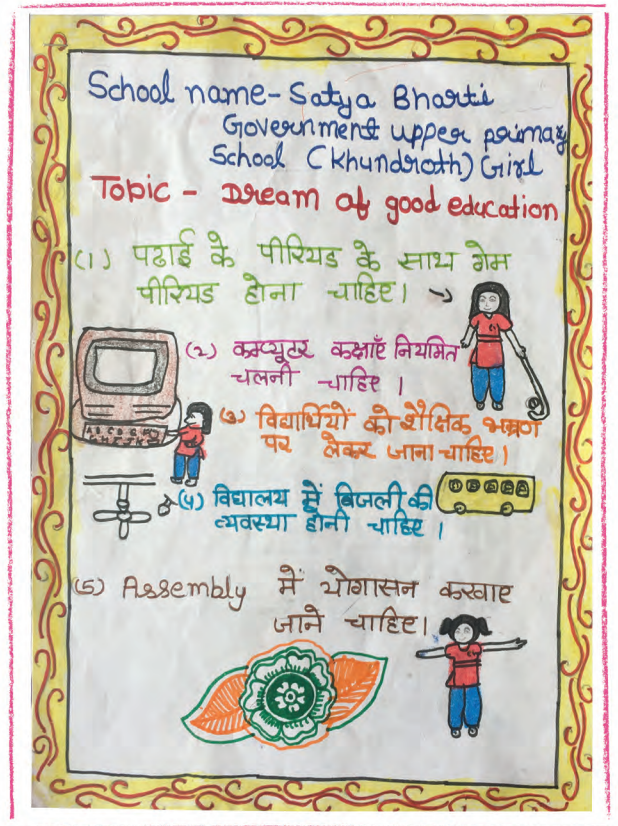 School name - Satya Bharti
Government upper primary
School (Khundroth) Girl
Topic - Dream of good education
(1) पढाई के पीरियड के साथ गेम
पीरियड होना चाहिए।
(2) कम्प्यूटर कक्षाएँ नियमित
चलनी चाहिए ।
(3) विद्यार्थियों को शैक्षिक भ्रमण
पर लेकर जाना चाहिए।
(4) विद्यालय में बिजली की
व्यवस्था होनी चाहिए ।
(5) Assembly में योगासन करवाए
जाने चाहिए।